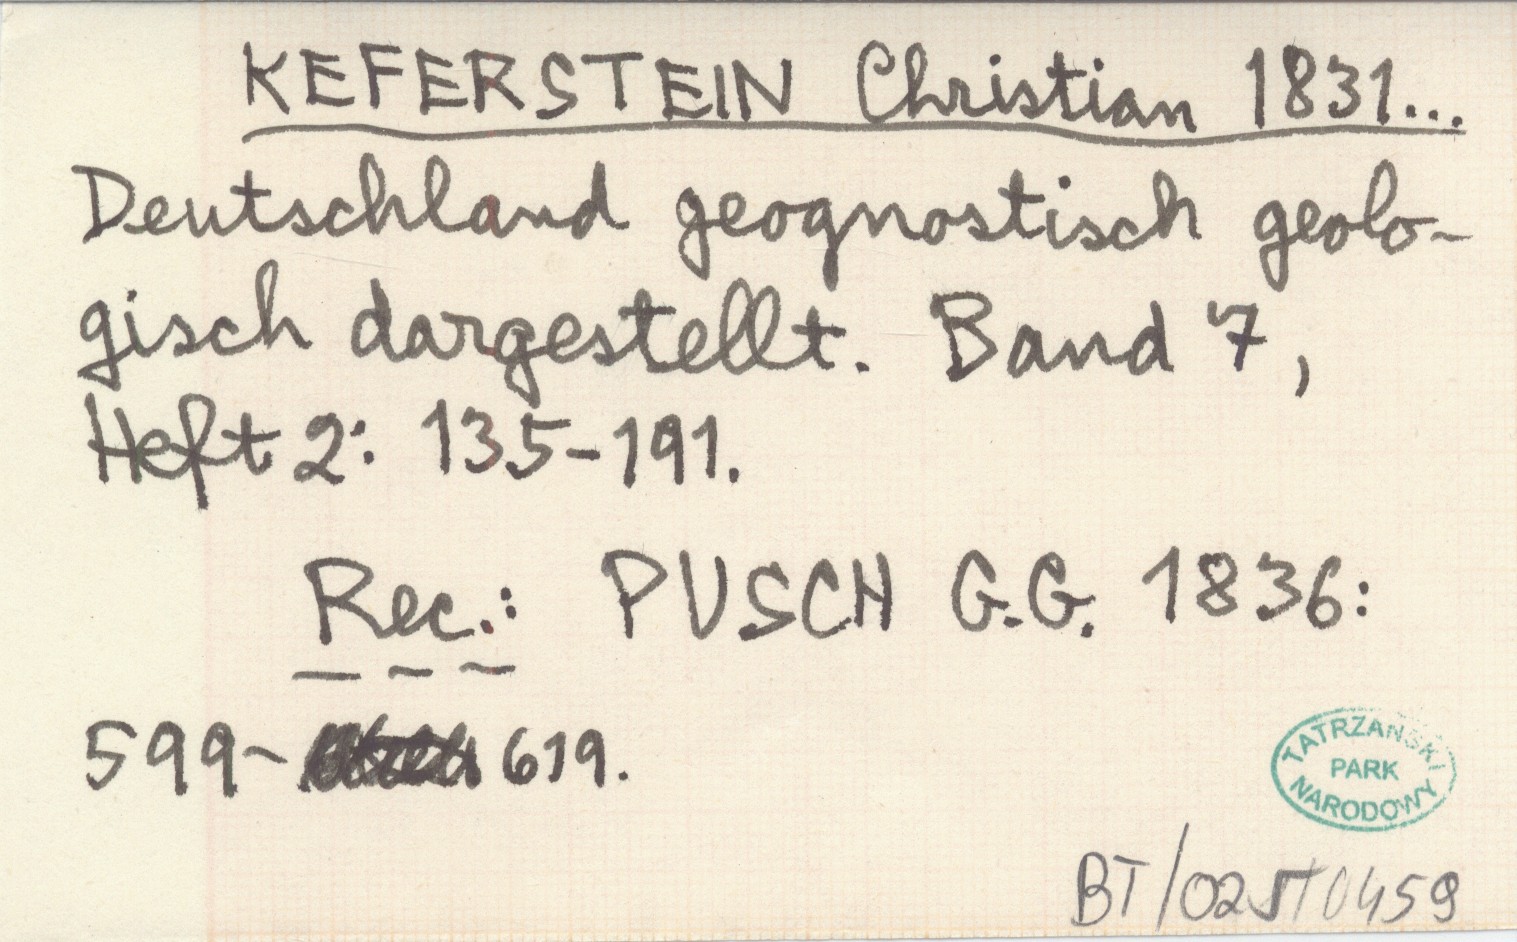 KEFERSTEIN Christian 1831...
Deutschland geognostisch geolo-
gisch dargestellt. Band 7,
Heft 2: 135-191.
Rec.: PUSCH G.G. 1836:
599- 619.
TATRZAŃSKI
PARK
NARODOWY